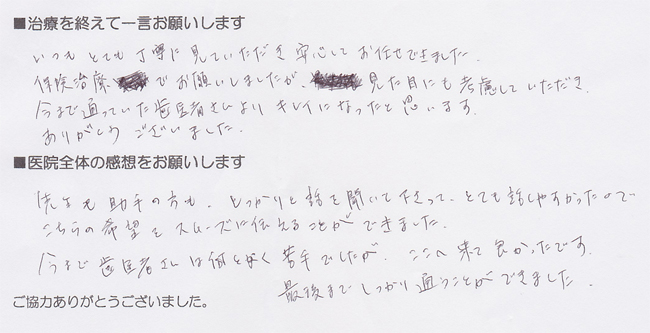 ■治療を終えて一言お願いします
いつもとても丁寧に見ていただき安心してお任せできました.
保険治療でお願いしましたが、見た目にも考慮していただき
今まで通っていた歯医者さんよりキレイになったと思います.
ありがとうございました.
■医院全体の感想をお願いします
先生も助手の方も、しっかりと話を聞いて下さって、とても話しやすかったので
こちらの希望もスムーズに伝えることができました.
今まで歯医者さんは何となく苦手でしたが、ここへ来て良かったです.
最後までしっかり通うことができました.
ご協力ありがとうございました。